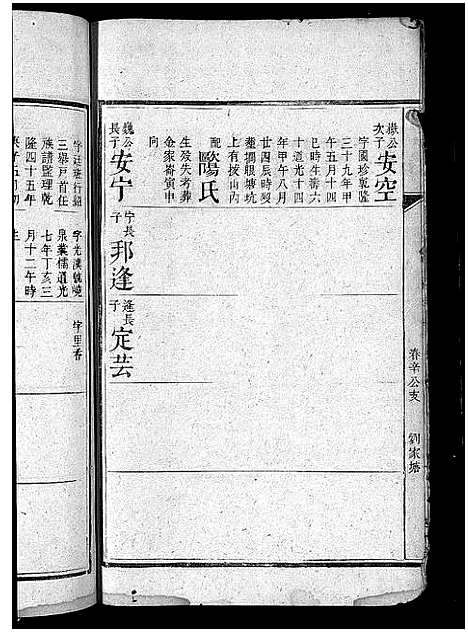 春辛公支 劉家塘
嶽公次子
安空
字國珍乾隆
三十九年甲
午五月十四
巳時生壽六
十道光十四
年甲午八月
廿四辰時歿
葬塘坑
上有按山內
配
陽氏
生歿失考葬
金家崙寅申
向
巍公長子
安宁
宁長子
邦逢
逢長子
定芸
字廷班行紹
三舉戶首任
族請監理乾
隆四十五年
字光漢號曉
泉業儒道光
七年丁亥三
月十二午時
生
字里香